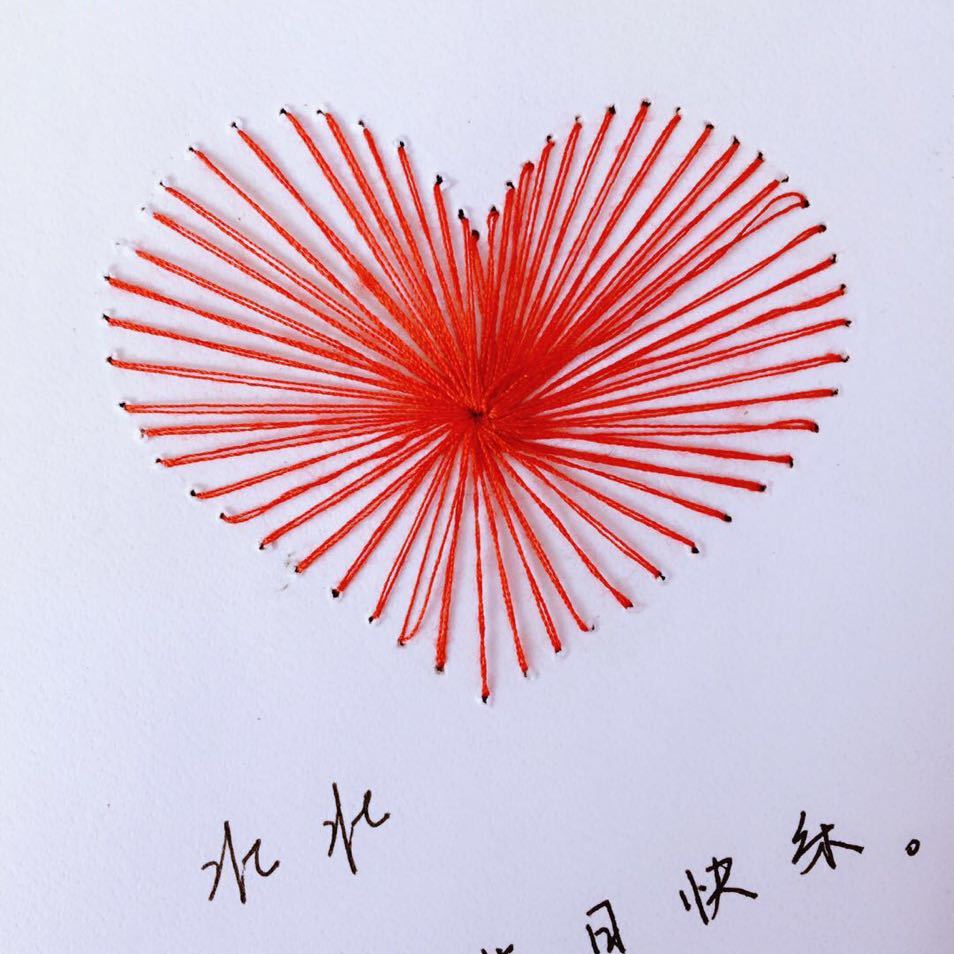 水水
日快乐。